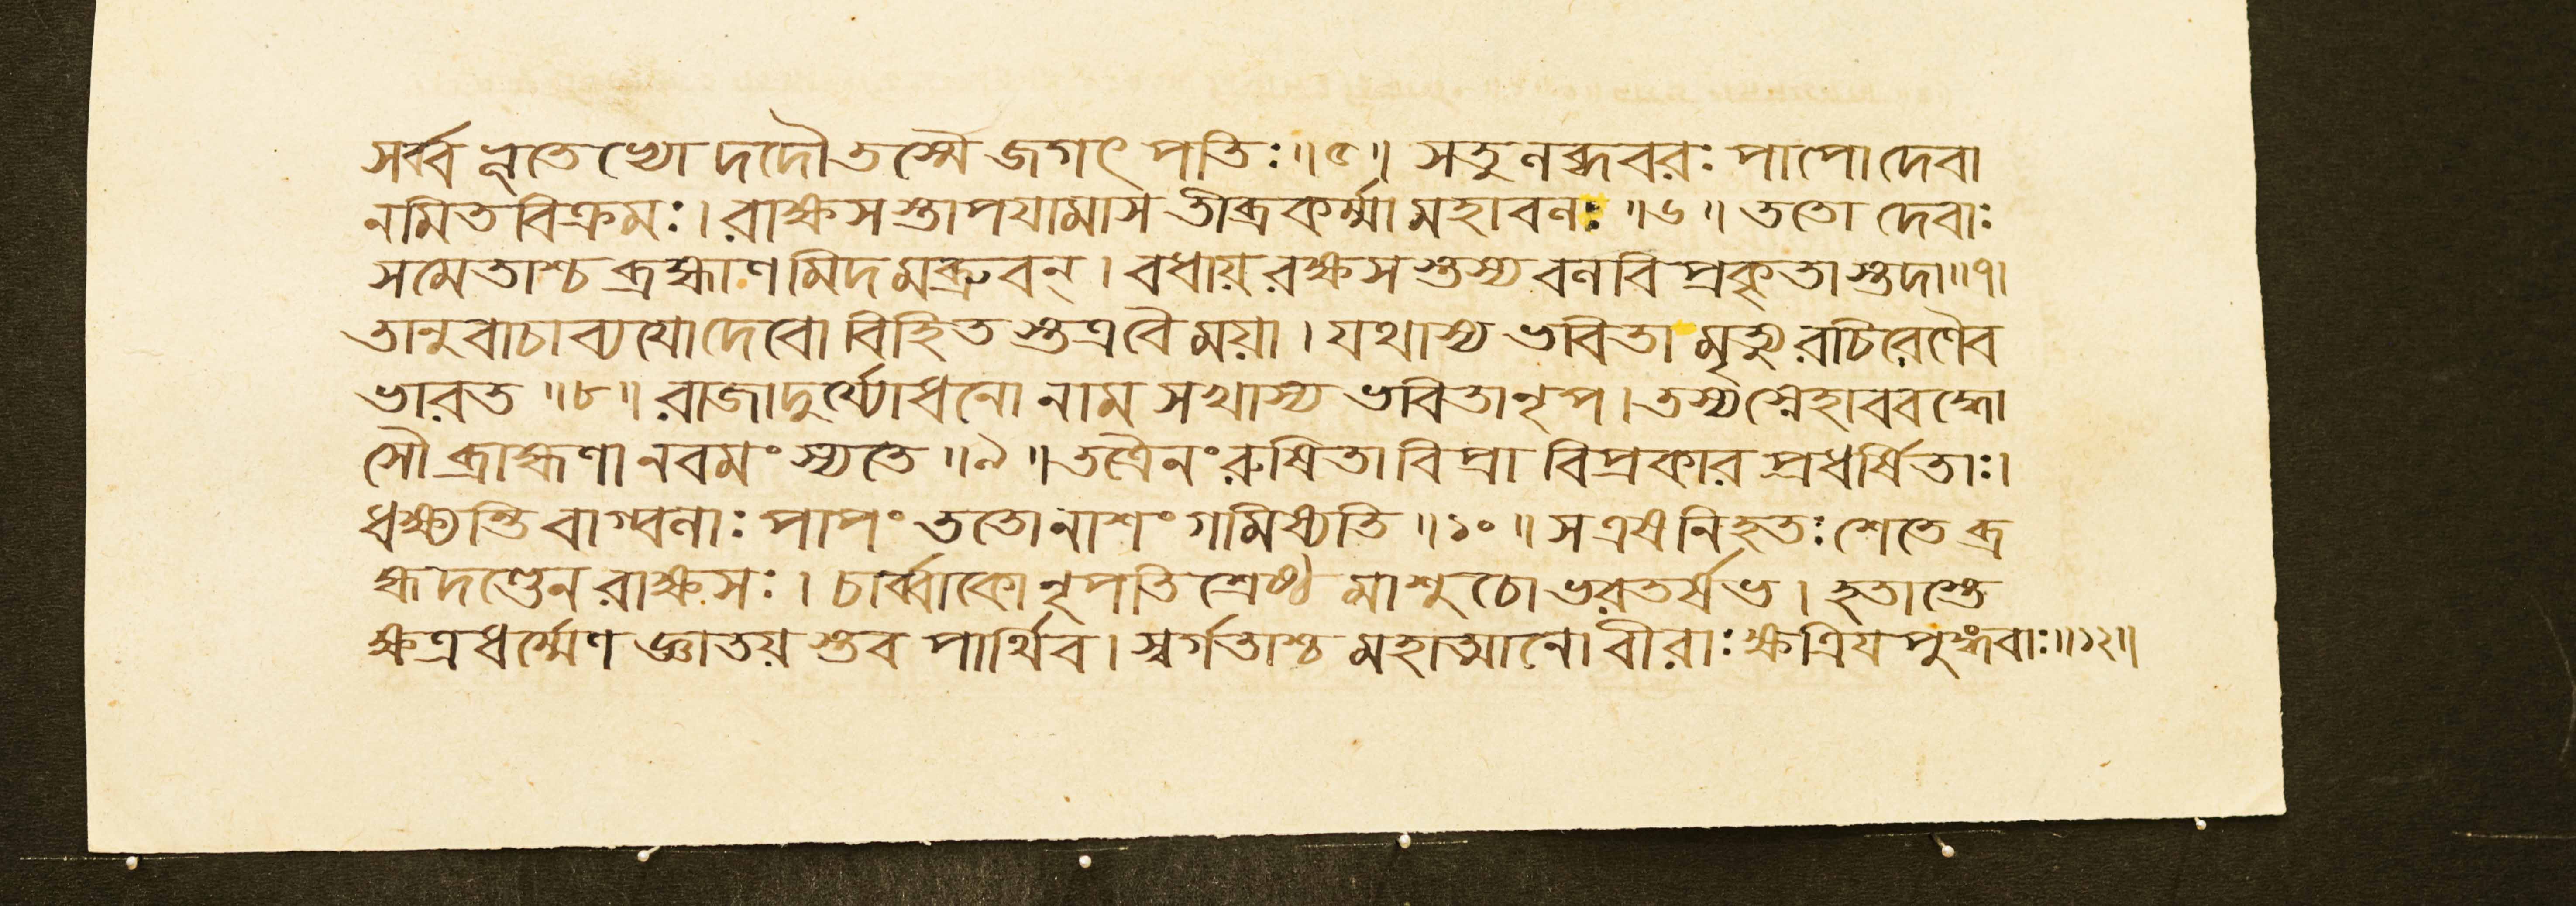 সর্ব্বভূতেভ্যো দদৌ তস্মৈ জগৎপতিঃ॥৫॥ সতু নব্ধবরঃ পাপো দেবা
নমিতবিক্রমঃ। রাক্ষসস্তাপযামাস তীব্রকর্ম্মা মহাবনঃ॥৬॥ ততো দেবাঃ
সমেতাশ্চ ব্রহ্মাণমিদমব্রুবন্। বধায় রক্ষসস্তস্য বনবিপ্রকৃতাস্তদা॥৭।
তানুবাচাব্যযো দেবো বিহিতস্তএবৈ ময়া। যথাস্য ভবিতা মৃত্যুরচিরেণৈব
ভারত॥৮॥ রাজা দুর্য্যোধনো নাম সখাস্য ভবিতা নৃপ। তস্য স্নেহাববদ্ধো
সৌ ব্রাহ্মণানবমংস্যতে॥৯॥ তত্রৈনং রুষিতা বিপ্রা বিপ্রকারপ্রধর্ষিতাঃ।
ধক্ষ্যন্তি বাগ্বনাঃ পাপং ততো নাশং গমিষ্যতি॥১০॥ স এষ নিহতঃ শেতে ব্র
হ্মদণ্ডেন রাক্ষসঃ। চার্ব্বাকো নৃপতিশ্রেষ্ঠ মা শুচো ভরতর্ষভ। হতাস্তে
ক্ষত্রধর্ম্মেণ জ্ঞাতয়স্তব পার্থিব। স্বর্গতাশ্চ মহাত্মানো বীরাঃ ক্ষত্রিযপুঙ্গবাঃ॥১২॥